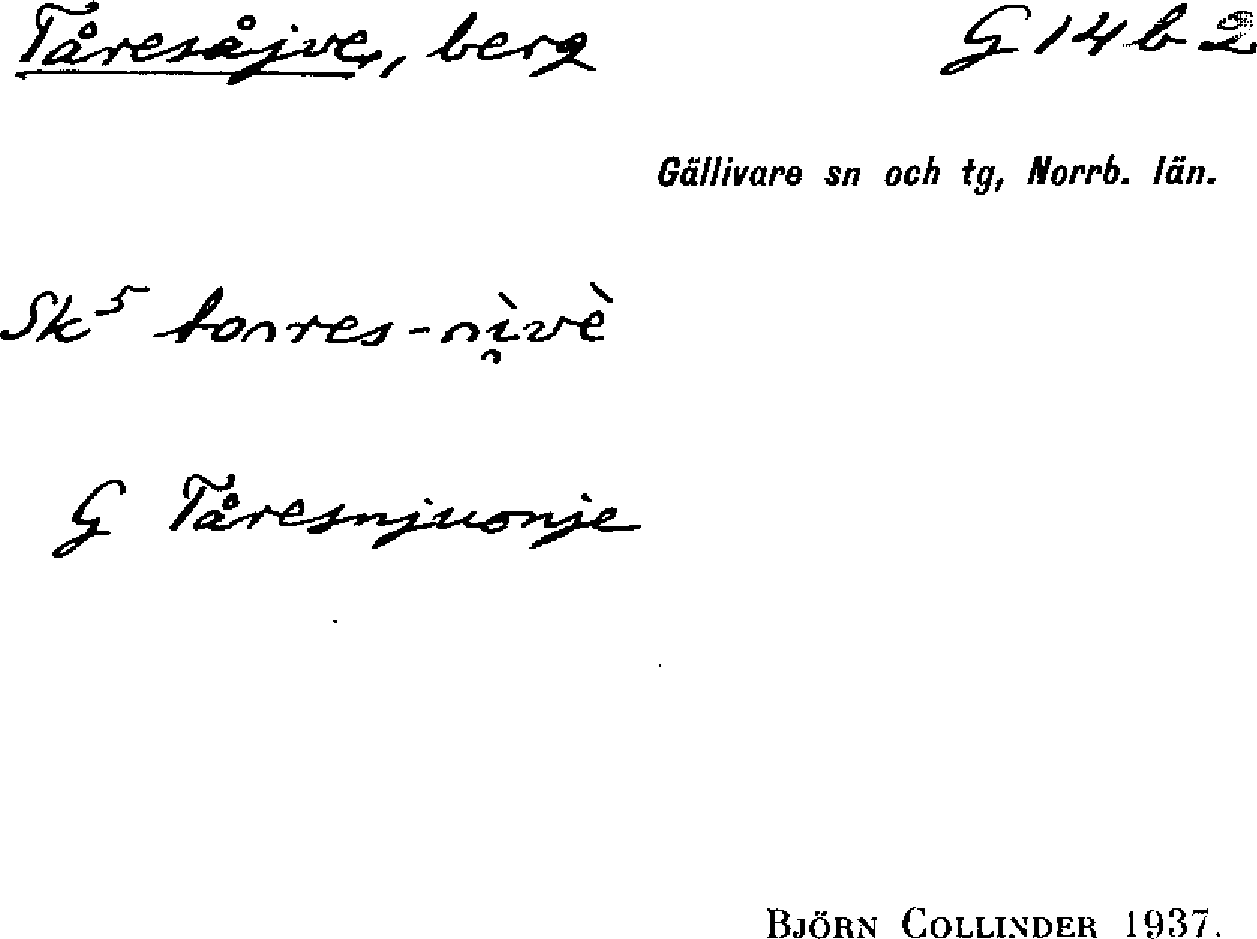 Tåresåjve, berg G 14 b 2
Gällivare sn och tg, Norrb. län.
Sk⁵
G Tåresnjuonje
BJÖRN COLLINDER 1937.